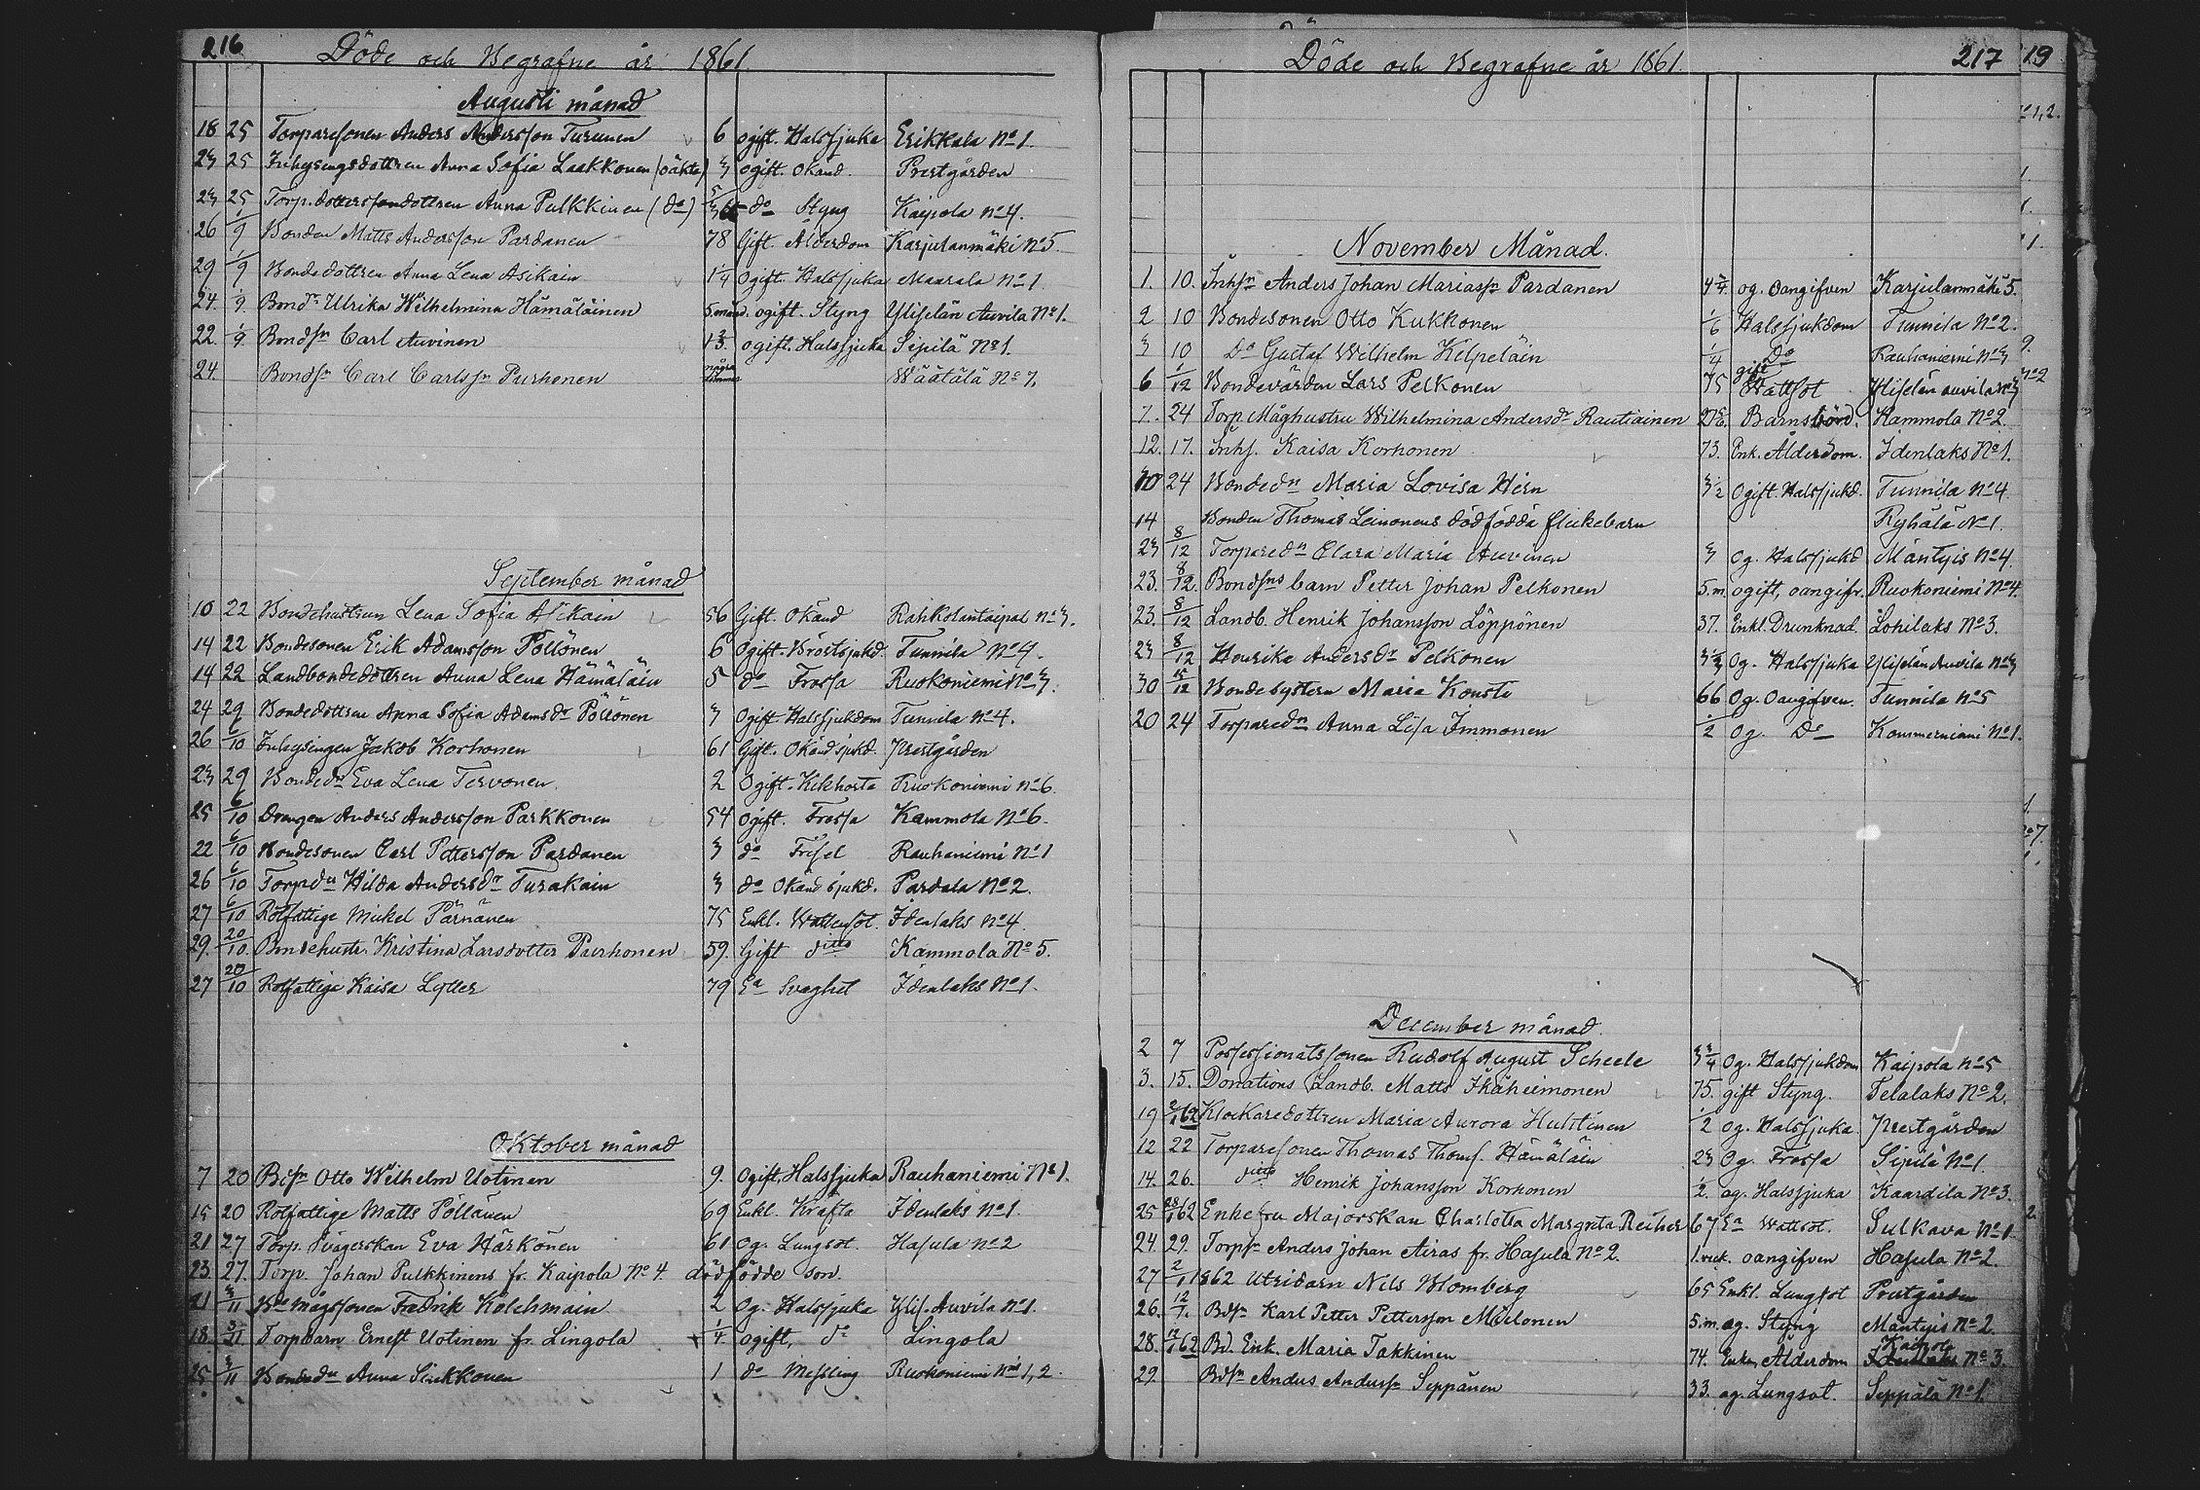 216
Döde och Begrafne år 1861.
Augusti månad
18 25 Torparesonen Anders Andersson Turunen 6 ogift. Halssjuka Erikkala No 1.
23 25 Inhysingsdottren Anna Sofia Laakkonen (oäkta) 3 ogift. Okänd. Prestgården
23 25 Torp. dotters dottren Anna Pulkkinen (do) do Styng Kaipola No 4.
26 1/9 Bonden Matts Andersson Pardanen 78 Gift. Ålderdom Karjulanmäki No 5.
29 1/9 Bondedottren Anna Lena Asikain 1 1/4 Ogift. Halssjuka Maarala No 1.
24. 1/9. Bondr Ulrika Wilhelmina Hämäläinen 5 månd. ogift. Styng Ylisjelän Auvila No 1.
22. 1/9. Bondsn Carl Auvinen 1 2/3. ogift. Halssjuka Sipilä No 1.
24. Bondsn Carl Carlssn Purhonen några timmar Wäätälä No 7.
September månad
10 22 Bondehustrun Lena Sofia Asikain 56 Gift. Okänd Rahkolantaipal No 3.
14 22 Bondesonen Erik Adamsson Pöllönen 6 Ogift. Bröstsjukd. Tunnila No 4.
14 22 Landbondedottren Anna Lena Hämäläin 5 do Frossa Ruokoniemi No 3.
24 29 Bondedottren Anna Sofia Adamsdr Pöllönen 3 Ogift. Halssjukdom Tunnila No 4.
26 6/10 Inhysingen Jakob Korhonen 61 Gift. Okänd sjukd. Prestgården
23 29 Bondedr Eva Lena Tervonen. 2 Ogift. Kikhosta Ruokoniemi No 6.
25 6/10 Drengen Anders Andersson Parkkonen 54 ogift. Frossa Kammola No 6.
22 6/10 Bondesonen Carl Pettersson Pardanen 3 do Frisel Rauhaniemi No 1
26 6/10 Torpdn Hilda Andersdr Turakain 3 do Okänd sjukd. Pardala No 2.
27 6/10 Rotfattige Mickel Pärnänen 75 Enkl. Wattensot. Idenlaks No 4.
29. 20/10. Bondehustr. Kristina Larsdotter Purhonen 59. Gift ditto Kammola No 5.
27 20/10 Rotfattige Kaisa Lytter 79 Ea Svaghet Idenlaks No 1.
Oktober månad
7 20 Bdsn Otto Wilhelm Uotinen 9. Ogift. Halssjuka Rauhaniemi No 1.
15 20 Rotfattige Matts Pöllänen 69 Enkl. Kräfta Idenlaks No 1.
21 27 Torp. Svägerskan Eva Härkönen 61 Og. Lungsot. Hasula No 2
23. 27. Torp. Johan Pulkkinens fr. Kaipola No 4. dödfödde son.
21 3/11 Bde mågssonen Fredrik Kolehmain 2 Og. Halssjuka Ylis. Auvila No 1.
18. 3/11 Torpbarn Ernest Uotinen fr. Lingola 1/4 ogift, do Lingola
25 3/11 Bondedn Anna Sirkkonen 1 do Messling Ruokoniemi No 1, 2.
217
Döde och Begrafne år 1861.
November Månad.
1. 10. Inhsn Anders Johan Mariassn Pardanen 4 3/4. og. Oangifven Karjulanmäki 5.
2 10 Bondesonen Otto Kukkonen 1/6 Halssjukdom Tunnila No 2.
3 10 Do Gustaf Wilhelm Kilpeläin 1/4 Do Rauhaniemi No 3
6 1/12 Bondevärden Lars Pelkonen 75 gift Wattsot Ylisjelän Auvila No 3
7. 24 Torp. Måghustru Wilhelmina Andersdr Rautiainen Barnsbörd. Kammola No 2.
12. 17. Inhs. Kaisa Korhonen 73. Enk. Ålderdom. Idenlaks No 1.
10 24 Bondedn Maria Lovisa Hirn 3 1/2 Ogift. Halssjukd. Tunnila No 4.
14 Bonden Thomas Leinonens dödfödda flickebarn Ryhälä No 1.
23 8/12 Torparedn Clara Maria Auvinen 3 Og. Halssjukd Mäntyis No 4.
23. 8/12. Bondsns barn Petter Johan Pelkonen 5. m. ogift, oangifv. Ruokoniemi No 4.
23. 8/12 Landb. Henrik Johansson Löppönen 37. Enkl. Drunknad. Lohilaks No 3.
23 8/12 Henrika Andersdr Pelkonen 3 1/3 Og. Halssjuka Ylisjelän Auvila No 3
30 15/12 Bondesystern Maria Konsti 66 Og. Oangifven. Tunnila No 5
20 24 Torparedn Anna Lisa Immonen 1/2 Og. Do Kommerniemi No 1.
December månad.
2 7 Possessionatssonen Rudolf August Scheele 3 3/4 Og. Halssjukdom Kaipola No 5
3. 15. Donations Landb. Matts Ikäheimonen 75. gift Styng. Telalaks No 2.
19 2/1 62 Klockaredottren Maria Aurora Huhtinen 1/2 Og. Halssjuka Prestgården
12 22 Torparesonen Thomas Thoms. Hämäläin 23 Og. Frossa Sipilä No 1
14. 26. ditto Henrik Johansson Korhonen 1/2. og. Halssjuka Kaardila No 3.
25 /1 62 Enkefru Majorskan Charlotta Margreta Reiher 67 Ea Wattsot. Sulkava No 1
24. 29. Torpsn Anders Johan Airas fr. Hasula No 2. 1. veck. oangifven Hasula No 2.
27 2/1 1862 Utridarn Nils Blomberg 65 Enkl. Lungsot Prestgården
26. 12/1. Bdsn Karl Petter Pettersson Mielonen 5. m. og. Styng Mäntyis No 2.
28. /1 62 Bd. Enk. Maria Takkinen 74. Enka, Ålderdom Kaipola No 3.
29 Bdsn Anders Anderss. Seppänen 33. og. Lungsot. Seppälä No 1.
19
No 1, 2.